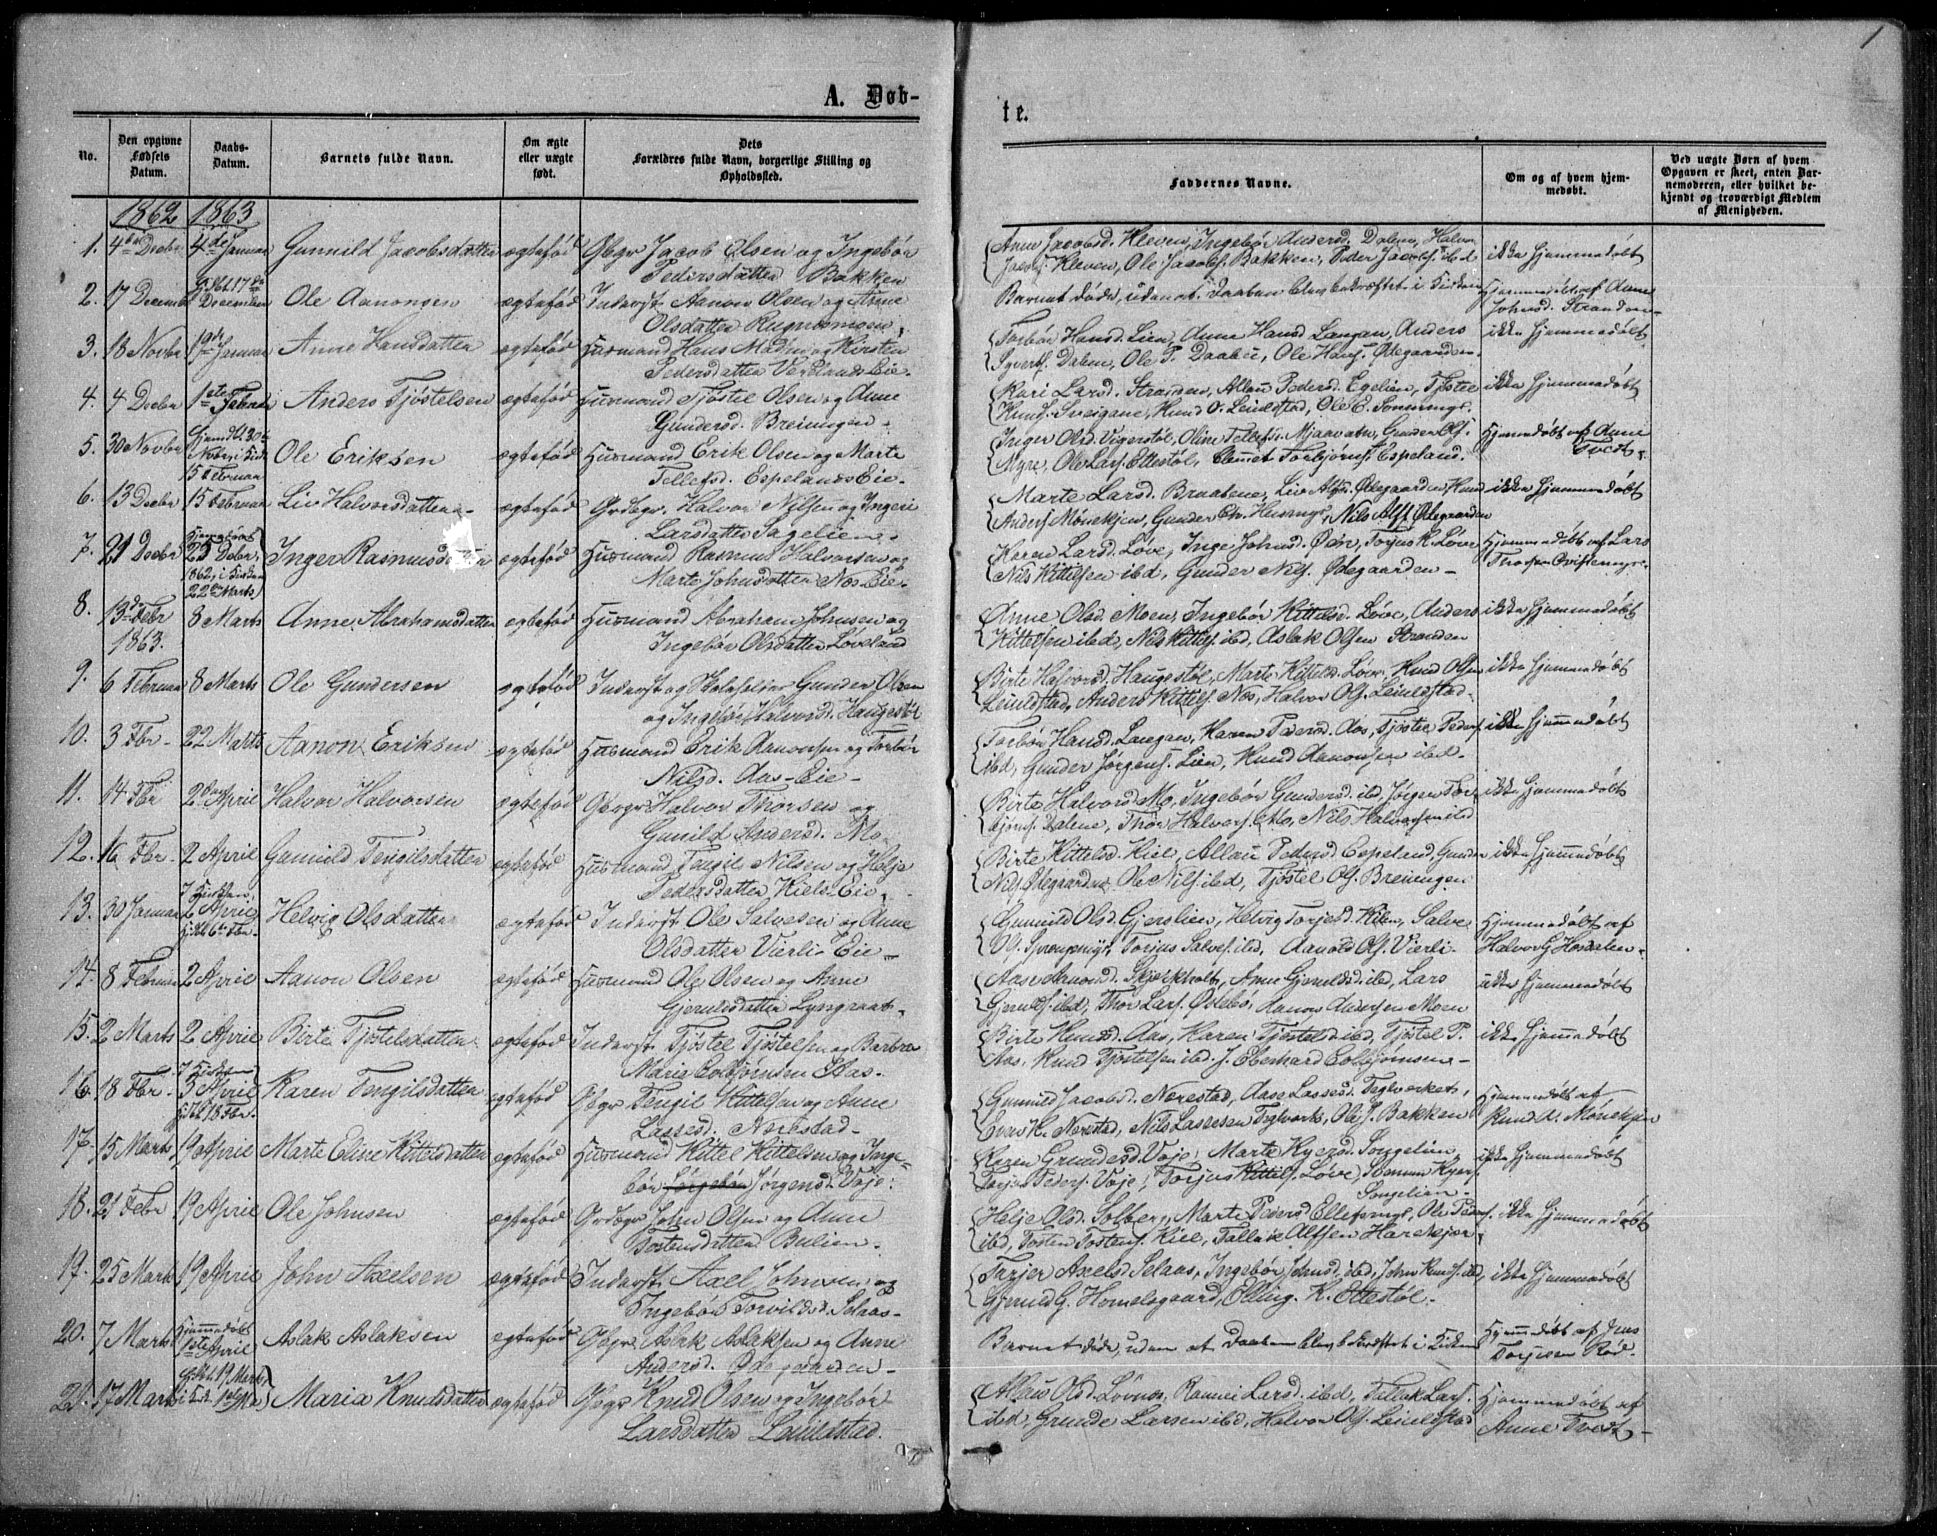 1
A. Døb-
te.
No.
Den opgivne Fødsels Datum.
Daabs-Datum.
Barnets fulde Navn.
Om ægte eller uægte født.
Dets Forældres fulde Navn, borgerlige Stilling og Opholdssted.
Faddernes Navne.
Om og af hvem hjem-medøbt.
Ved uægte Børn af hvem Opgaven er skeet, enten Bar-nemoderen, eller hvilket be-kjendt og troværdigt Medlem af Menigheden.
1862 1863
1. 4de Decbr 4de Januar Gunnild Jacobsdatter ægtefød Gbgr Jacob Olsen og Ingebør
Pedersdatter Bakken
Anne Jacobsd. Kleven, Ingebør Andersd. Dalene, Halvor
Jacobs. Kleven, Ole Jacobs. Bakken, Peder Jacobs. ibd
ikke hjemmedøbt
2. 17 Decembr Hjdbt. 17de December Ole Aanonsen ægtefød Inderst Aanon Olsen og Anne
Olsdatter
Barnet døde, uden at Daaben blev bekræftet i Kirken
Hjemmedøbt af Anne
Johnsd. Stranden
3. 18 Novbr Januar Anne Hansdatter ægtefød Husmand Hans Madsen og Kirsten
Pedersdatter Eie.
Torbør Hansd. Lien, Anne Hansd Langan, Anders
Syverts. Dalen, Ole P. Daabu, Ole Hans. Ødegaarden
ikke hjemmedøbt
4. 4 Decbr 1ste Februar Anders Tjøstelsen ægtefød Husmand Tjøstel Olsen og Anne
Gundersd. Breiungen
Kari Larsd. Stranden, Allau Pedersd. Egelien, Tjøstel
Knuds. Sveigane, Knud O. Leiulstad, Ole E.
ikke hjemmedøbt
5. 30 Novbr Hjemdbt. 30te Novbr, i Kirke 15 Februar Ole Eriksen ægtefød Husmand Erik Olsen og Marte
Tellefsd. Espelands Eie
Inger Olsd. Vegerstøl, Oline Tellefsd. Mjaavatn, Gunder Ols.
Myre, Ole Lars. Ettestøl, Clemet Torbjørns. Espeland.
Hjemmedøbt af Anne
Tvedt.
6. 13 Decbr 15 Februar Liv Halvorsdatter ægtefød Grdbgr. Halvor Nilsen og Ingeri
Larsdatter Sagelien
Marte Larsd. Braatene, Liv Alfsd. Ødegaarden, Knud
Anders. Mønekjen, Gunder Chr. Husmyr, Nils Alfs. Ødegaarden
ikke hjemmedøbt
7. 21 Decbr Hjemdøbt 25 Decbr. 1862, i Kirken 22de Marts Inger Rasmusdatter ægtefød Husmand Rasmus Halvorsen og
Marte Johnsdatter Næs Eie.
Karen Larsd. Løve, Inge Johnsd. Øen, Torjus K. Løve
Nils Kittelsen ibd, Gunder Nils. Ødegaarden
Hjemmedøbt af Lars
8. 13de Febr 1863. 8 Marts Anne Abrahamsdatter ægtefød Husmand Abraham Johnsen og
Ingebør Olsdatter Løveland
Anne Olsd. Moen, Ingebør Kittelsd. Løve, Anders
Kittelsen ibd, Nils Kittels. ibd, Aslak Olsen Stranden
ikke hjemmedøbt
9. 6 Februar 8 Marts Ole Gundersen ægtefød Inderst og Skoleholder Gunder Olsen
og Ingebør Halvorsd. Haugestøl
Birte Halvorsd. Haugestøl, Marte Kittelsd. Løve, Knud Olsen
Leiulstad, Anders Kittels. Næs, Halvor Ols. Leiulstad
ikke hjemmedøbt
10. 3 Fbr 22 Marts Aanon Eriksen ægtefød Husmand Erik Aanonsen og Torbør
Nilsd. Aas-Eie
Torbør Hansd. Langan, Karen Pedersd. Aas, Tjøstel Peders.
ibd, Gunder Jørgens. Lien, Knud Aanonsen ibd.
ikke hjemmedøbt
11. 14 Fbr 2den April Halvor Halvorsen ægtefød Gbrgr Halvor Thorsen og
Gunild Andersd. Mo
Birte Halvorsd. Mo, Ingebør Gundersd. ibd, Jørgen Tor-
bjørns. Dalene, Thor Halvors. Mo, Nils Halvorsen ibd
ikke hjemmedøbt
12. 16 Fbr. 2 April Gunuld Tengilsdatter ægtefød Husmand Tengil Nilsen og Helje
Pedersdatter Kiels Eie
Birte Kittelsd. Kiel, Allau Pedersd. Espeland, Gunder
Nils. Ødegaarden, Ole Nils. ibd, Tjøstel Ols. Breiungen
ikke hjemmedøbt
13. 30 Januar I Kirken 2 April Helvig Olsdatter ægtefød Inderst Ole Salvesen og Anne
Olsdatter Værli Eie
Gunuld Olsd. Gjerslien, Helvig Torjesd. Kilen, Salve
Ols. Torjus Salves. ibd, Aanold Ols. Værli
Hjemmedøbt af
Halvor G. Hovdalen
14. 8 Februar 2 April Aanon Olsen ægtefød Husmand Ole Olsen og Anne
Gjerulsdatter Lyngraat
Aase Aanonsd. Skjærkholt, Anne Gjerulsd. ibd, Lars
Gjeruls. ibd, Thor Lars. Østebø, Aanon Andersen Moen
ikke hjemmedøbt
15. 2 Marts 2 April Birte Tjøstelsdatter ægtefød Inderst Tjøstel Tjøstelsen og Barbro
Maria Eolbjørnsen Aas.
Birte Knudsd. Aas, Karen Tjøstelsd. ibd, Tjøstel P.
Aas, Knud Tjøstelsen ibd. J. Eberhard Eolbjørnsen
ikke hjemmedøbt
16. 18 Fbr. I Kirken 3 April Hjdbt 18 Fbr. Karen Tengilsdatter ægtefød Gbgr Tengil Kittelsen og Anne
Lassesd. Nærestad
Gunuld Jacobsd. Nærestad, Aase Lassesd. Teglverket,
Even K. Nærestad, Nils Lassesen Teglverket, Ole J. Bakken
Hjemmedøbt af
Knud A. Mønekjen
17. 15 Marts 19 April Marte Eline Kittelsdatter ægtefød Husmand Kittel Kittelsen og Inge-
bør Jørgensd. Voje.
Karen Grundesd. Voje, Marte Kyersd. Songelien,
Torjus Peders. Voje, Torjus Kittels. Løve, Kyers.
Songelien
ikke hjemmedøbt
18. 21 Febr 19 April Ole Johnsen ægtefød Grdbgr John Olsen og Anne
Tostensdatter Bulien.
Helje Olsd. Solberg, Marte Pedersd. Ellefsmyr, Ole Peders.
ibd, Tosten Tostens. Kiel, Tallak Alfsen Harekjær
ikke hjemmedøbt
19. 25 Marts 19 April John Axelsen ægtefød Inderst Axel Johnsen og
Ingebør Torvildsd. Selaas
Tarjer Axelsd. Selaas, Ingebør Johnsd. ibd, John Knuds. ibd,
Gjeruld G. Homelsgaard, Elling K. Ettestøl.
ikke hjemmedøbt
20. 7 Marts Hjemmedøbt 1ste April Aslak Aslaksen ægtefød Gbgr Aslak Aslaksen og Anne
Andersd. Ødegaarden
Barnet døde, uden at Daaben blev bekræftet i Kirken
Hjemmedøbt af Jens
Torjesen Røe.
21. 17 Marts Hjdbt. 17 Marts i Kirke Maria Knudsdatter ægtefød Gbgr Knud Olsen og Ingebør
Larsdatter Leiulstad.
Allau Olsd. Løvnæs, Rannei Larsd. ibd, Tallak Lars.
ibd, Grunde Larsen ibd, Halvor Ols. Leiulstad
Hjemmedøbt af
Anne Tvedt